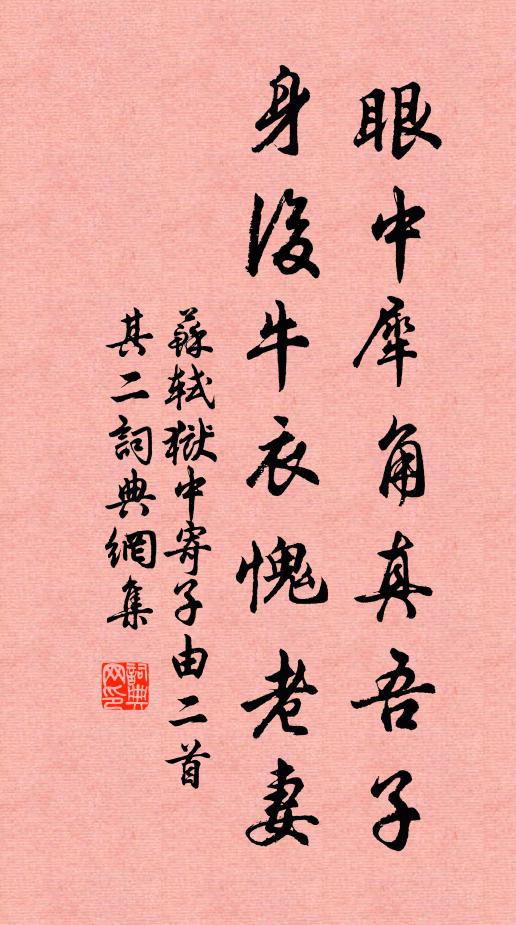 眼中犀角真吾子
身後牛衣愧老妻
蘇軾獄中寄子由二首
其二詞典網集
詞典網印